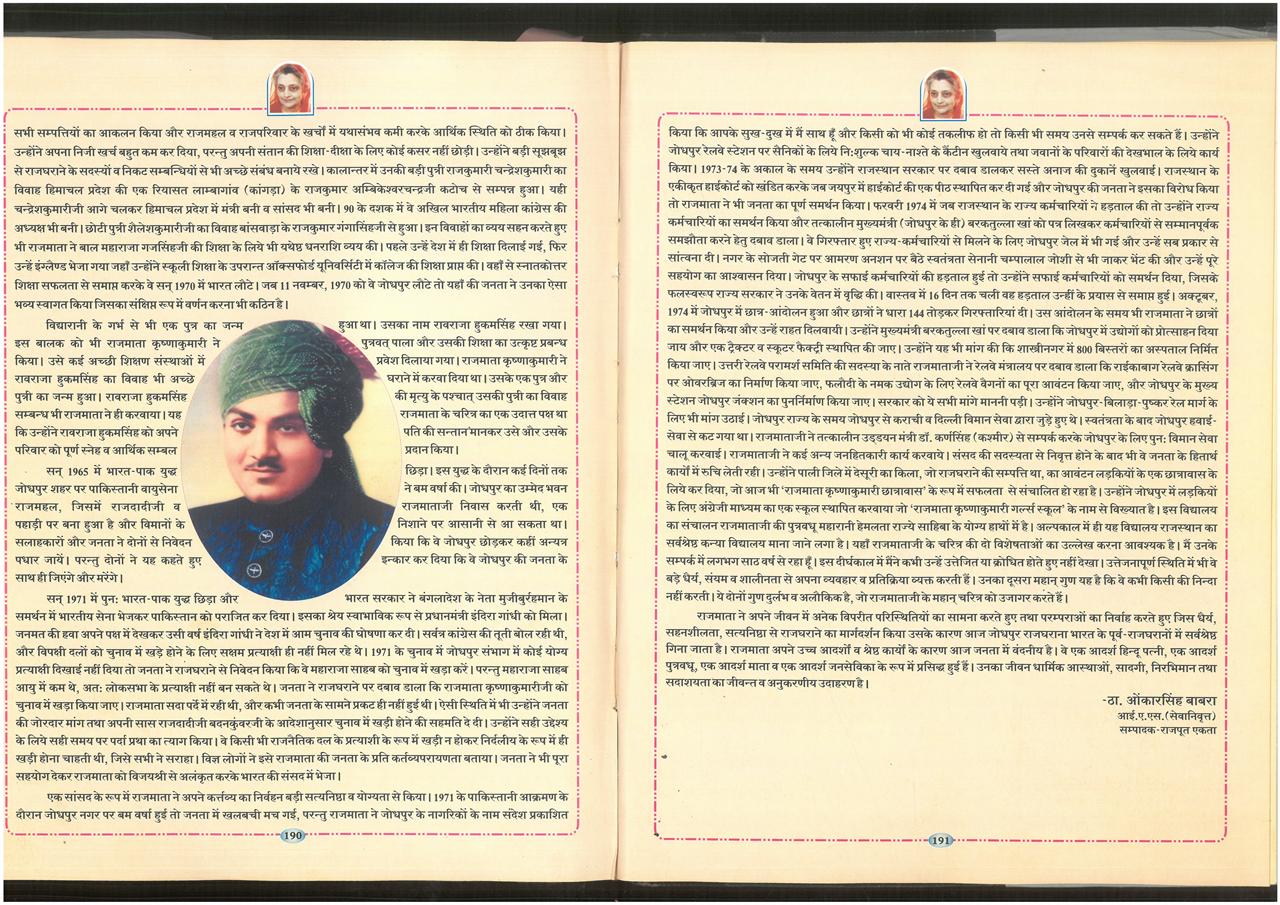 सभी सम्पत्तियों का आकलन किया और राजमहल व राजपरिवार के खर्चों में यथासंभव कमी करके आर्थिक स्थिति को ठीक किया।
उन्होंने अपना निजी खर्च बहुत कम कर दिया, परन्तु अपनी संतान की शिक्षा-दीक्षा के लिए कोई कसर नहीं छोड़ी। उन्होंने बड़ी सूझबूझ
से राजघराने के सदस्यों व निकट सम्बन्धियों से भी अच्छे संबंध बनाये रखे। कालान्तर में उनकी बड़ी पुत्री राजकुमारी चन्द्रेशकुमारी का
विवाह हिमाचल प्रदेश की एक रियासत लाम्बागांव (कांगड़ा) के राजकुमार अम्बिकेश्वरचन्द्रजी कटोच से सम्पन्न हुआ। यही
चन्द्रेशकुमारीजी आगे चलकर हिमाचल प्रदेश में मंत्री बनी व सांसद भी बनी। 90 के दशक में वे अखिल भारतीय महिला कांग्रेस की
अध्यक्ष भी बनी। छोटी पुत्री शैलेशकुमारीजी का विवाह बांसवाड़ा के राजकुमार गंगासिंहजी से हुआ। इन विवाहों का व्यय सहन करते हुए
भी राजमाता ने बाल महाराजा गजसिंहजी की शिक्षा के लिये भी यथेष्ठ धनराशि व्यय की। पहले उन्हें देश में ही शिक्षा दिलाई गई, फिर
उन्हें इंग्लैण्ड भेजा गया जहाँ उन्होंने स्कूली शिक्षा के उपरान्त ऑक्सफोर्ड यूनिवर्सिटी में कॉलेज की शिक्षा प्राप्त की। वहाँ से स्नातकोत्तर
शिक्षा सफलता से समाप्त करके वे सन् 1970 में भारत लौटे। जब 11 नवम्बर, 1970 को वे जोधपुर लौटे तो यहाँ की जनता ने उनका ऐसा
भव्य स्वागत किया जिसका संक्षिप्त रूप में वर्णन करना भी कठिन है।
विद्यारानी के गर्भ से भी एक पुत्र का जन्म हुआ था। उसका नाम रावराजा हुकमसिंह रखा गया।
इस बालक को भी राजमाता कृष्णाकुमारी ने पुत्रवत् पाला और उसकी शिक्षा का उत्कृष्ट प्रबन्ध
किया। उसे कई अच्छी शिक्षण संस्थाओं में प्रवेश दिलाया गया। राजमाता कृष्णाकुमारी ने
रावराजा हुकमसिंह का विवाह भी अच्छे घराने में करवा दिया था। उसके एक पुत्र और
पुत्री का जन्म हुआ। रावराजा हुकमसिंह की मृत्यु के पश्चात् उसकी पुत्री का विवाह
सम्बन्ध भी राजमाता ने ही करवाया। यह राजमाता के चरित्र का एक उदात्त पक्ष था
कि उन्होंने रावराजा हुकमसिंह को अपने पति की सन्तान मानकर उसे और उसके
परिवार को पूर्ण स्नेह व आर्थिक सम्बल प्रदान किया।
सन् 1965 में भारत-पाक युद्ध छिड़ा। इस युद्ध के दौरान कई दिनों तक
जोधपुर शहर पर पाकिस्तानी वायुसेना ने बम वर्षा की। जोधपुर का उम्मेद भवन
राजमहल, जिसमें राजदादीजी व राजमाताजी निवास करती थी, एक
पहाड़ी पर बना हुआ है और विमानों के निशाने पर आसानी से आ सकता था।
सलाहकारों और जनता ने दोनों से निवेदन किया कि वे जोधपुर छोड़कर कहीं अन्यत्र
पधार जायें। परन्तु दोनों ने यह कहते हुए इन्कार कर दिया कि वे जोधपुर की जनता के
साथ ही जिएंगे और मरेंगे।
सन् 1971 में पुन: भारत-पाक युद्ध छिड़ा और भारत सरकार ने बंगलादेश के नेता मुजीबुर्रहमान के
समर्थन में भारतीय सेना भेजकर पाकिस्तान को पराजित कर दिया। इसका श्रेय स्वाभाविक रूप से प्रधानमंत्री इंदिरा गांधी को मिला।
जनमत की हवा अपने पक्ष में देखकर उसी वर्ष इंदिरा गांधी ने देश में आम चुनाव की घोषणा कर दी। सर्वत्र कांग्रेस की तूती बोल रही थी,
और विपक्षी दलों को चुनाव में खड़े होने के लिए सक्षम प्रत्याक्षी ही नहीं मिल रहे थे। 1971 के चुनाव में जोधपुर संभाग में कोई योग्य
प्रत्याक्षी दिखाई नहीं दिया तो जनता ने राजघराने से निवेदन किया कि वे महाराजा साहब को चुनाव में खड़ा करें। परन्तु महाराजा साहब
आयु में कम थे, अत: लोकसभा के प्रत्याक्षी नहीं बन सकते थे। जनता ने राजघराने पर दबाव डाला कि राजमाता कृष्णाकुमारीजी को
चुनाव में खड़ा किया जाए। राजमाता सदा पर्दे में रही थी, और कभी जनता के सामने प्रकट ही नहीं हुई थी। ऐसी स्थिति में भी उन्होंने जनता
की जोरदार मांग तथा अपनी सास राजदादीजी बदनकुंवरजी के आदेशानुसार चुनाव में खड़ी होने की सहमति दे दी। उन्होंने सही उद्देश्य
के लिये सही समय पर पर्दा प्रथा का त्याग किया। वे किसी भी राजनैतिक दल के प्रत्याशी के रूप में खड़ी न होकर निर्दलीय के रूप में ही
खड़ी होना चाहती थी, जिसे सभी ने सराहा। विज्ञ लोगों ने इसे राजमाता की जनता के प्रति कर्तव्यपरायणता बताया। जनता ने भी पूरा
सहयोग देकर राजमाता को विजयश्री से अलंकृत करके भारत की संसद में भेजा।
एक सांसद के रूप में राजमाता ने अपने कर्त्तव्य का निर्वहन बड़ी सत्यनिष्ठा व योग्यता से किया। 1971 के पाकिस्तानी आक्रमण के
दौरान जोधपुर नगर पर बम वर्षा हुई तो जनता में खलबची मच गई, परन्तु राजमाता ने जोधपुर के नागरिकों के नाम संदेश प्रकाशित
190
किया कि आपके सुख-दुख में मैं साथ हूँ और किसी को भी कोई तकलीफ हो तो किसी भी समय उनसे सम्पर्क कर सकते हैं। उन्होंने
जोधपुर रेलवे स्टेशन पर सैनिकों के लिये नि:शुल्क चाय-नाश्ते के कैंटीन खुलवाये तथा जवानों के परिवारों की देखभाल के लिये कार्य
किया। 1973-74 के अकाल के समय उन्होंने राजस्थान सरकार पर दबाव डालकर सस्ते अनाज की दुकानें खुलवाई। राजस्थान के
एकीकृत हाईकोर्ट को खंडित करके जब जयपुर में हाईकोर्ट की एक पीठ स्थापित कर दी गई और जोधपुर की जनता ने इसका विरोध किया
तो राजमाता ने भी जनता का पूर्ण समर्थन किया। फरवरी 1974 में जब राजस्थान के राज्य कर्मचारियों ने हड़ताल की तो उन्होंने राज्य
कर्मचारियों का समर्थन किया और तत्कालीन मुख्यमंत्री (जोधपुर के ही) बरकतुल्ला खां को पत्र लिखकर कर्मचारियों से सम्मानपूर्वक
समझौता करने हेतु दबाव डाला। वे गिरफ्तार हुए राज्य-कर्मचारियों से मिलने के लिए जोधपुर जेल में भी गई और उन्हें सब प्रकार से
सांत्वना दी। नगर के सोजती गेट पर आमरण अनशन पर बैठे स्वतंत्रता सेनानी चम्पालाल जोशी से भी जाकर भेंट की और उन्हें पूरे
सहयोग का आश्वासन दिया। जोधपुर के सफाई कर्मचारियों की हड़ताल हुई तो उन्होंने सफाई कर्मचारियों को समर्थन दिया, जिसके
फलस्वरूप राज्य सरकार ने उनके वेतन में वृद्धि की। वास्तव में 16 दिन तक चली वह हड़ताल उन्हीं के प्रयास से समाप्त हुई। अक्टूबर,
1974 में जोधपुर में छात्र-आंदोलन हुआ और छात्रों ने धारा 144 तोड़कर गिरफ्तारियां दी। उस आंदोलन के समय भी राजमाता ने छात्रों
का समर्थन किया और उन्हें राहत दिलवायी। उन्होंने मुख्यमंत्री बरकतुल्ला खां पर दबाव डाला कि जोधपुर में उद्योगों को प्रोत्साहन दिया
जाय और एक ट्रैक्टर व स्कूटर फेक्ट्री स्थापित की जाए। उन्होंने यह भी मांग की कि शास्त्रीनगर में 800 बिस्तरों का अस्पताल निर्मित
किया जाए। उत्तरी रेलवे परामर्श समिति की सदस्या के नाते राजमाताजी ने रेलवे मंत्रालय पर दबाव डाला कि राईकाबाग रेलवे क्रासिंग
पर ओवरब्रिज का निर्माण किया जाए, फलौदी के नमक उद्योग के लिए रेलवे बैगनों का पूरा आवंटन किया जाए, और जोधपुर के मुख्य
स्टेशन जोधपुर जंक्शन का पुनर्निर्माण किया जाए। सरकार को ये सभी मांगे माननी पड़ी। उन्होंने जोधपुर-बिलाड़ा-पुष्कर रेल मार्ग के
लिए भी मांग उठाई। जोधपुर राज्य के समय जोधपुर से कराची व दिल्ली विमान सेवा द्वारा जुड़े हुए थे। स्वतंत्रता के बाद जोधपुर हवाई-
सेवा से कट गया था। राजमाताजी ने तत्कालीन उड्डयन मंत्री डॉ. कर्णसिंह (कश्मीर) से सम्पर्क करके जोधपुर के लिए पुन: विमान सेवा
चालू करवाई। राजमाताजी ने कई अन्य जनहितकारी कार्य करवाये। संसद की सदस्यता से निवृत्त होने के बाद भी वे जनता के हितार्थ
कार्यों में रुचि लेती रही। उन्होंने पाली जिले में देसूरी का किला, जो राजघराने की सम्पत्ति था, का आवंटन लड़कियों के एक छात्रावास के
लिये कर दिया, जो आज भी 'राजमाता कृष्णाकुमारी छात्रावास' के रूप में सफलता से संचालित हो रहा है। उन्होंने जोधपुर में लड़कियों
के लिए अंग्रेजी माध्यम का एक स्कूल स्थापित करवाया जो 'राजमाता कृष्णाकुमारी गर्ल्स स्कूल' के नाम से विख्यात है। इस विद्यालय
का संचालन राजमाताजी की पुत्रवधू महारानी हेमलता राज्ये साहिबा के योग्य हाथों में है। अल्पकाल में ही यह विद्यालय राजस्थान का
सर्वश्रेष्ठ कन्या विद्यालय माना जाने लगा है। यहाँ राजमाताजी के चरित्र की दो विशेषताओं का उल्लेख करना आवश्यक है। मैं उनके
सम्पर्क में लगभग साठ वर्ष से रहा हूँ। इस दीर्घकाल में मैंने कभी उन्हें उत्तेजित या क्रोधित होते हुए नहीं देखा। उत्तेजनापूर्ण स्थिति में भी वे
बड़े धैर्य, संयम व शालीनता से अपना व्यवहार व प्रतिक्रिया व्यक्त करती हैं। उनका दूसरा महान् गुण यह है कि वे कभी किसी की निन्दा
नहीं करती। ये दोनों गुण दुर्लभ व अलौकिक है, जो राजमाताजी के महान् चरित्र को उजागर करते हैं।
राजमाता ने अपने जीवन में अनेक विपरीत परिस्थितियों का सामना करते हुए तथा परम्पराओं का निर्वाह करते हुए जिस धैर्य,
सहनशीलता, सत्यनिष्ठा से राजघराने का मार्गदर्शन किया उसके कारण आज जोधपुर राजघराना भारत के पूर्व-राजघरानों में सर्वश्रेष्ठ
गिना जाता है। राजमाता अपने उच्च आदर्शों व श्रेष्ठ कार्यों के कारण आज जनता में वंदनीय है। वे एक आदर्श हिन्दू पत्नी, एक आदर्श
पुत्रवधू, एक आदर्श माता व एक आदर्श जनसेविका के रूप में प्रसिद्ध हुई हैं। उनका जीवन धार्मिक आस्थाओं, सादगी, निरभिमान तथा
सदाशयता का जीवन्त व अनुकरणीय उदाहरण है।
-ठा. ओंकारसिंह बाबरा
आई.ए.एस.(सेवानिवृत्त)
सम्पादक-राजपूत एकता
191